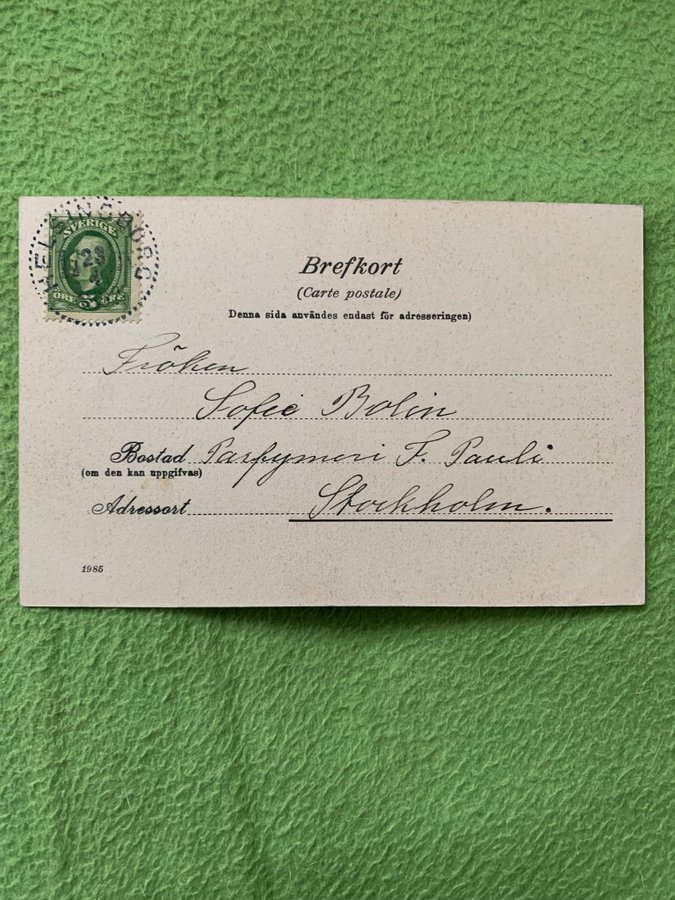 HELSINGBORG
SVERIGE
29
ÖRE 5 ÖRE
Brefkort
(Carte postale)
Denna sida användes endast för adresseringen)
Fröken
Sofie Bolin
Bostad Parfymeri F. Pauli
(om den kan uppgifvas)
Adressort Stockholm.
1985